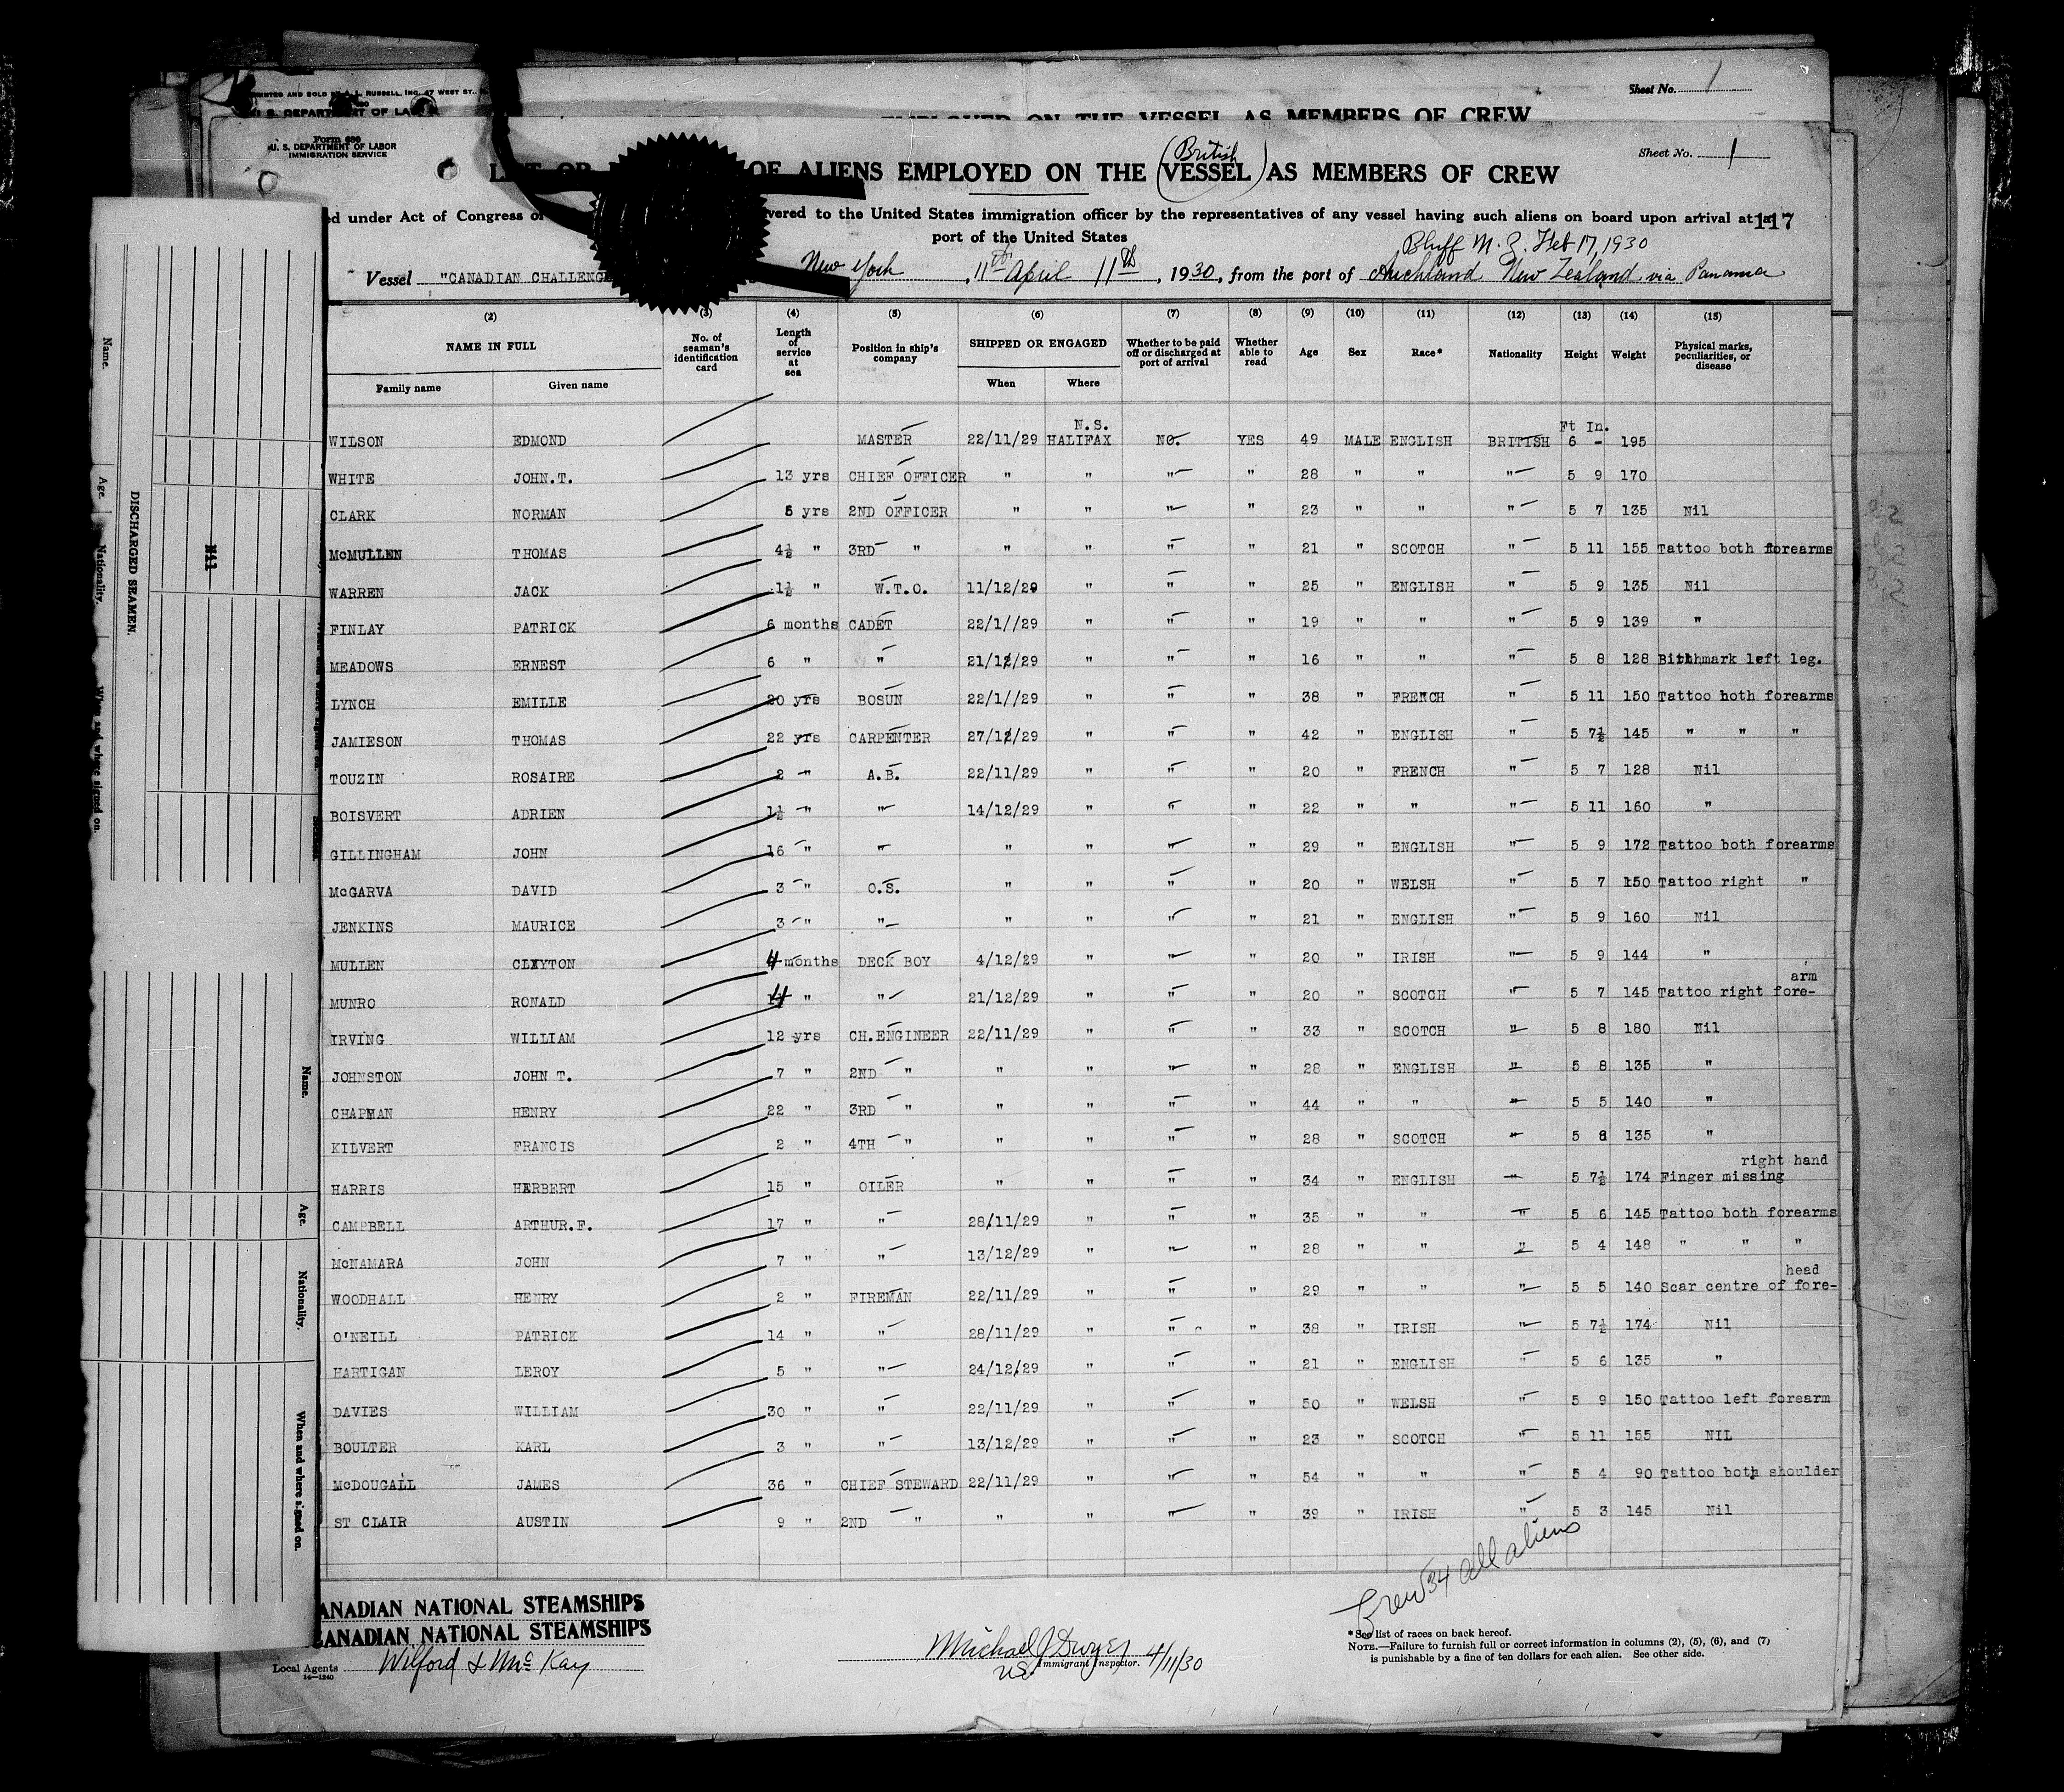 PRINTED AND SOLD BY A. L. RUSSELL, INC. 47 WEST ST.,
U. S. DEPARTMENT OF LABOR
Sheet No. 1
EMPLOYED ON THE VESSEL AS MEMBERS OF CREW
Form 680
U. S. DEPARTMENT OF LABOR
IMMIGRATION SERVICE
Sheet No. 1
British
OF ALIENS EMPLOYED ON THE (VESSEL) AS MEMBERS OF CREW
ed under Act of Congress of vered to the United States immigration officer by the representatives of any vessel having such aliens on board upon arrival at
117
port of the United States
Bluff N.Z. Feb 17, 1930
Vessel "CANADIAN CHALLENG New York, 11th April 11th, 1930, from the port of Auckland New Zealand via Panama
(2) (3) (4) (5) (6) (7) (8) (9) (10) (11) (12) (13) (14) (15)
NAME IN FULL No. of seaman's identification card Length of service at sea Position in ship's company SHIPPED OR ENGAGED Whether to be paid off or discharged at port of arrival Whether able to read Age Sex Race* Nationality Height Weight Physical marks, peculiarities, or disease
Family name Given name When Where
N.S. Ft In.
WILSON EDMOND MASTER 22/11/29 HALIFAX NO. YES 49 MALE ENGLISH BRITISH 6 - 195
WHITE JOHN.T. 13 yrs CHIEF OFFICER " " " " 28 " " " 5 9 170
CLARK NORMAN 5 yrs 2ND OFFICER " " " " 23 " " " 5 7 135 Nil
McMULLEN THOMAS 4½ " 3RD " " " " " 21 " SCOTCH " 5 11 155 Tattoo both forearms
WARREN JACK 1½ " W.T.O. 11/12/29 " " " 25 " ENGLISH " 5 9 135 Nil
FINLAY PATRICK 6 months CADET 22/1//29 " " " 19 " " " 5 9 139 "
MEADOWS ERNEST 6 " " 21/12/29 " " " 16 " " " 5 8 128 Birthmark left leg.
LYNCH EMILLE 20 yrs BOSUN 22/1//29 " " " 38 " FRENCH " 5 11 150 Tattoo both forearms
JAMIESON THOMAS 22 yrs CARPENTER 27/12/29 " " " 42 " ENGLISH " 5 7½ 145 " " "
TOUZIN ROSAIRE 2 " A.B. 22/11/29 " " " 20 " FRENCH " 5 7 128 Nil
BOISVERT ADRIEN 1½ " " 14/12/29 " " " 22 " " " 5 11 160 "
GILLINGHAM JOHN 16 " " " " " " 29 " ENGLISH " 5 9 172 Tattoo both forearms
McGARVA DAVID 3 " O.S. " " " " 20 " WELSH " 5 7 150 Tattoo right "
JENKINS MAURICE 3 " " " " " " 21 " ENGLISH " 5 9 160 Nil
MULLEN CLAYTON 4 months DECK BOY 4/12/29 " " " 20 " IRISH " 5 9 144 "
arm
MUNRO RONALD 4 " " 21/12/29 " " " 20 " SCOTCH " 5 7 145 Tattoo right fore-
IRVING WILLIAM 12 yrs CH.ENGINEER 22/11/29 " " " 33 " SCOTCH " 5 8 180 Nil
JOHNSTON JOHN T. 7 " 2ND " " " " " 28 " ENGLISH " 5 8 135 "
CHAPMAN HENRY 22 " 3RD " " " " " 44 " " " 5 5 140 "
KILVERT FRANCIS 2 " 4TH " " " " " 28 " SCOTCH " 5 8 135 "
right hand
HARRIS HERBERT 15 " OILER " " " " 34 " ENGLISH " 5 7½ 174 Finger missing
CAMPBELL ARTHUR.F. 17 " " 28/11/29 " " " 35 " " " 5 6 145 Tattoo both forearms
McNAMARA JOHN 7 " " 13/12/29 " " " 28 " " " 5 4 148 " " "
head
WOODHALL HENRY 2 " FIREMAN 22/11/29 " " " 29 " " " 5 5 140 Scar centre of fore-
O'NEILL PATRICK 14 " " 28/11/29 " " " 38 " IRISH " 5 7½ 174 Nil
HARTIGAN LEROY 5 " " 24/12/29 " " " 21 " ENGLISH " 5 6 135 "
DAVIES WILLIAM 30 " " 22/11/29 " " " 50 " WELSH " 5 9 150 Tattoo left forearm
BOULTER KARL 3 " " 13/12/29 " " " 23 " SCOTCH " 5 11 155 NIL
McDOUGALL JAMES 36 " CHIEF STEWARD 22/11/29 " " " 54 " " " 5 4 90 Tattoo both shoulder
ST CLAIR AUSTIN 9 " 2ND " " " " " 39 " IRISH " 5 3 145 Nil
Crew 34 all aliens
CANADIAN NATIONAL STEAMSHIPS
CANADIAN NATIONAL STEAMSHIPS
Local Agents Wilford & McKay
16—1240
Michael J Dwyer 4/11/30
US Immigrant Inspector.
* See list of races on back hereof.
NOTE.—Failure to furnish full or correct information in columns (2), (5), (6), and (7)
is punishable by a fine of ten dollars for each alien. See other side.
DISCHARGED SEAMEN.
Name. Age. Nationality. When and where signed on.
Nil
Name. Age. Nationality. When and where signed on.